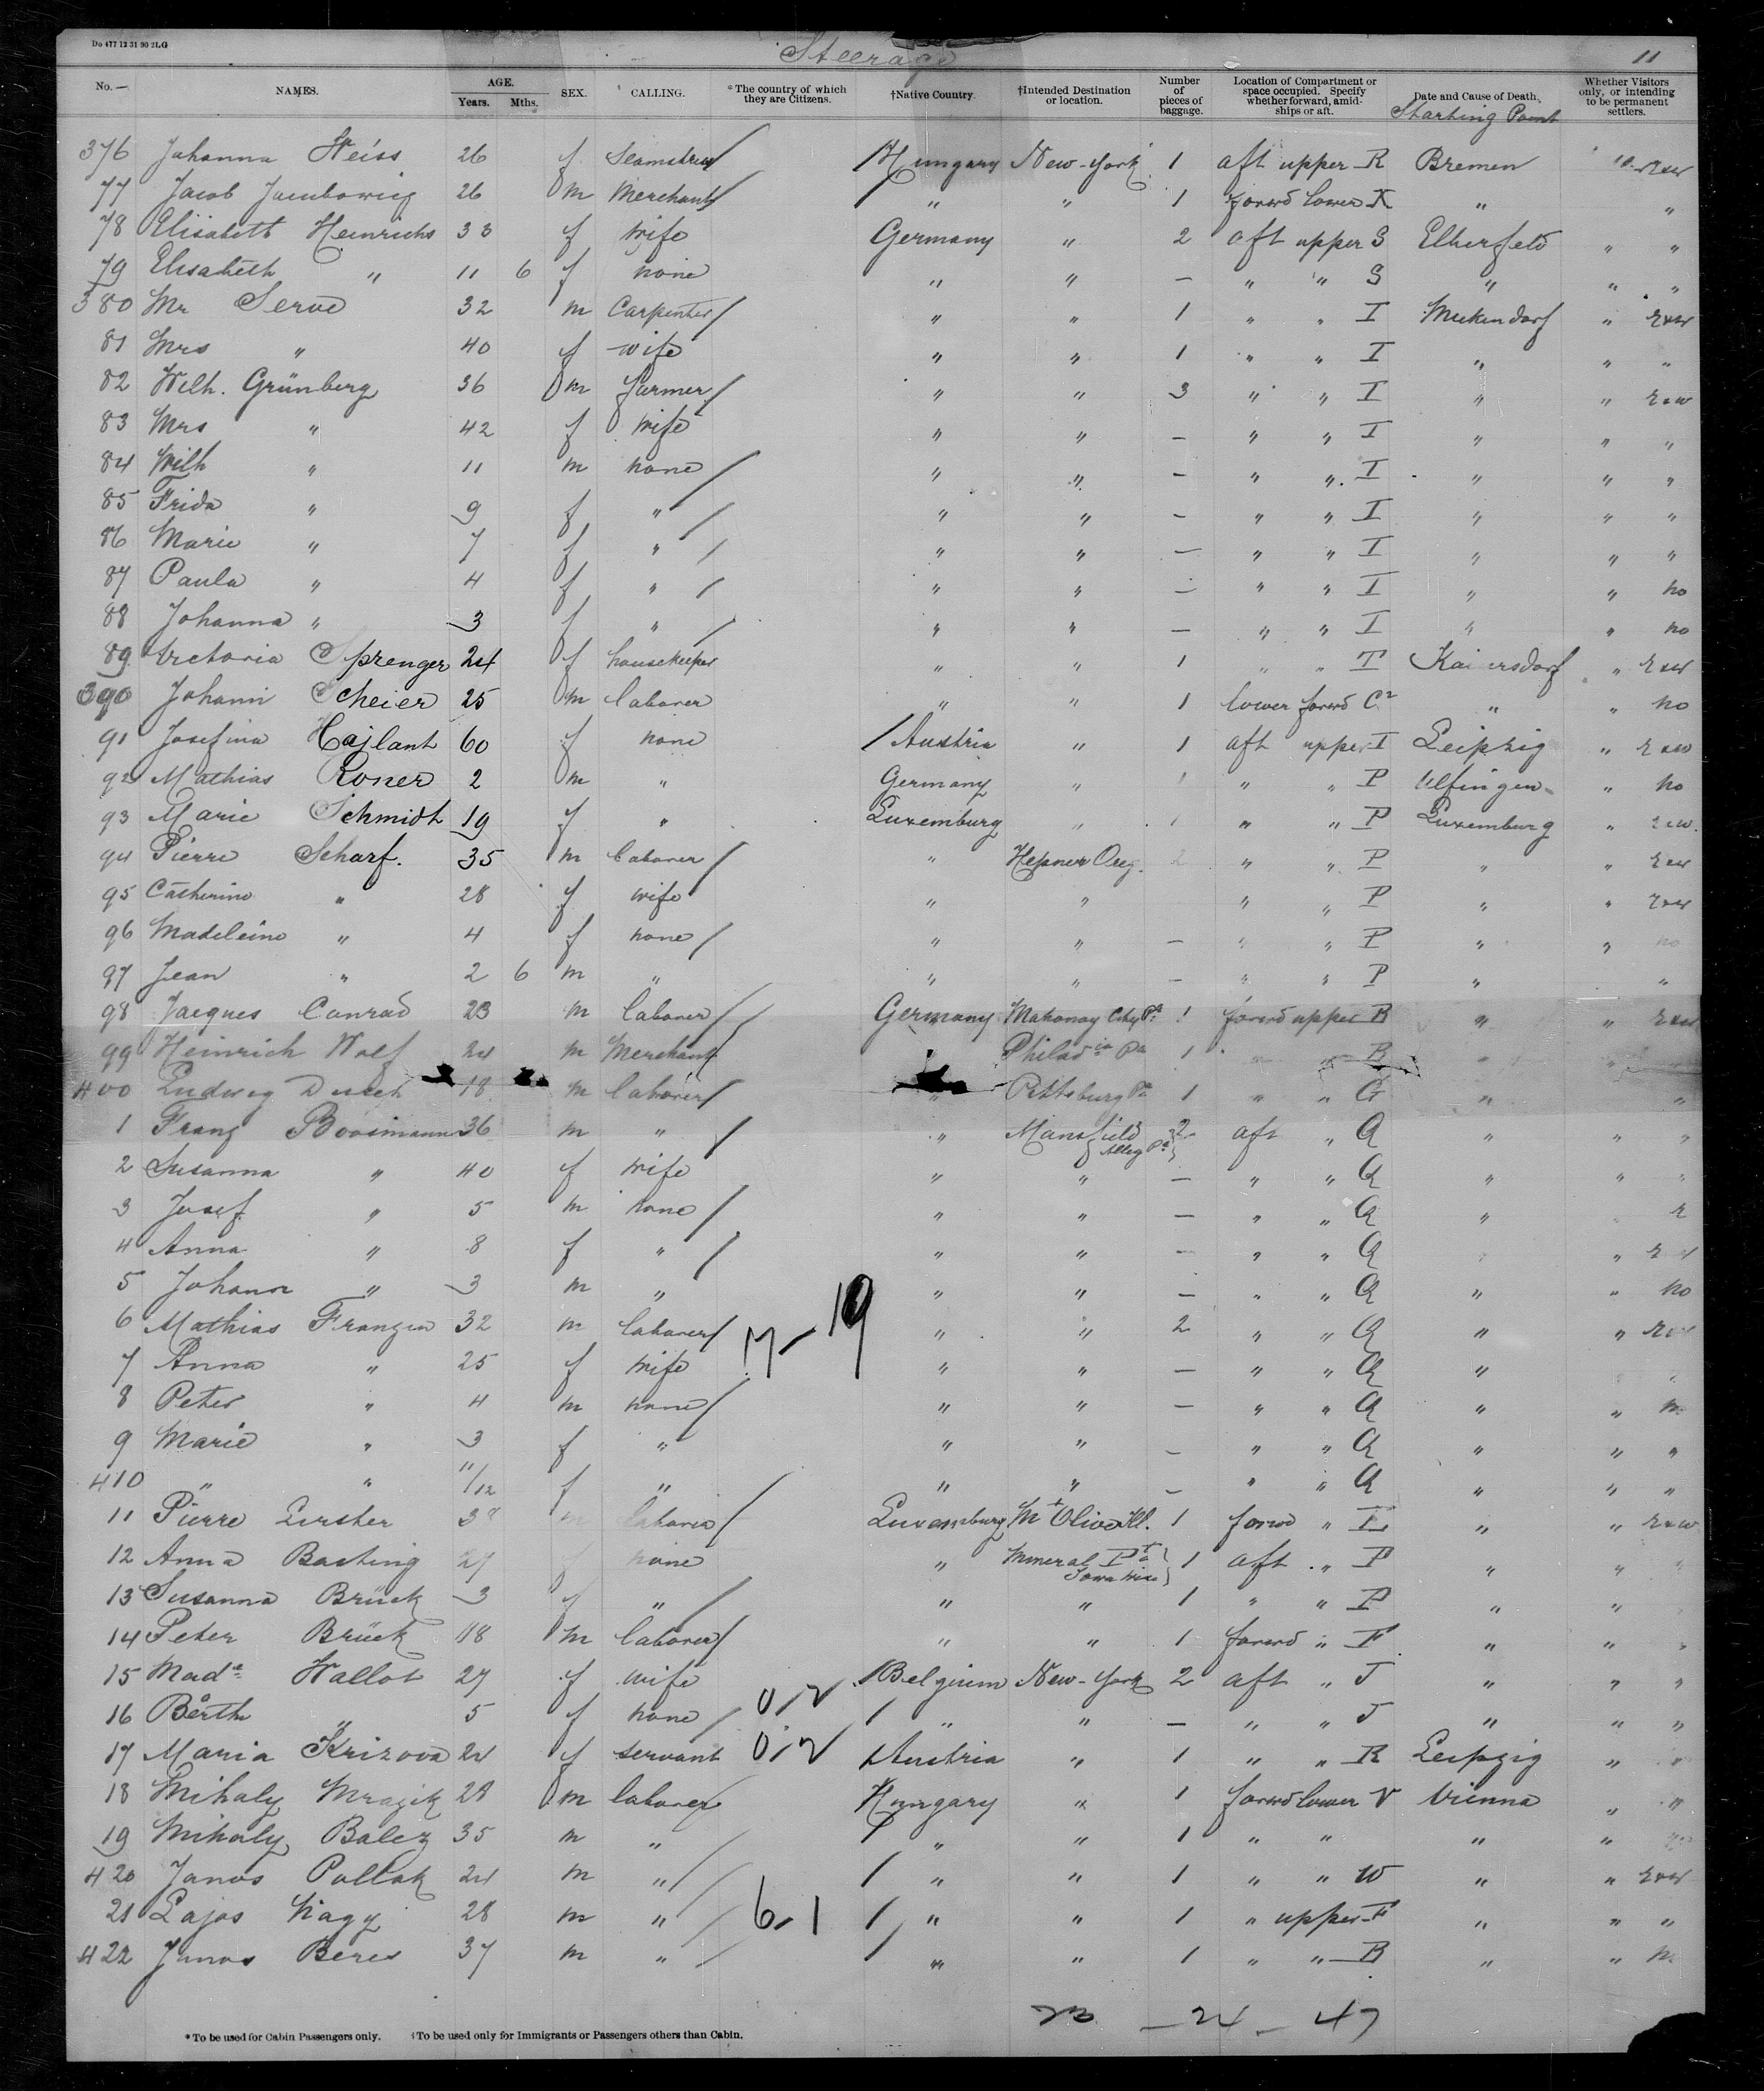 Do 477 12 31 90 2LG
Steerage 11
No. NAMES. AGE. Years. Mths. SEX. CALLING. *The country of which they are Citizens. †Native Country. †Intended Destination or location. Number of pieces of baggage. Location of Compartment or space occupied. Specify whether forward, amid-ships or aft. Date and Cause of Death. Starting Point Whether Visitors only, or intending to be permanent settlers.
376 Johanna Weiss 26 f Seamstress / Hungary New-York 1 aft upper R Bremen
77 Jacob Jacubowicz 26 m Merchant / " " 1 forwd lower X " "
78 Elisabeth Heinrichs 33 f wife Germany " 2 aft upper S Elberfeld " "
79 Elisabeth " 11 6 f none " " — " " S " " "
380 Mr Serve 32 m Carpenter / " " 1 " " I Meckendorf " r&w
81 Mrs " 40 f wife " " 1 " " I " " "
82 Wilh. Grünberg 36 m farmer / " " 3 " " I " " r&w
83 Mrs " 42 f wife " " — " " I " " "
84 Wilh " 11 m none / " " — " " I " " "
85 Frida " 9 f " / " " — " " I " " "
86 Marie " 7 f " / " " — " " I " " "
87 Paula " 4 f " / " " — " " I " " no
88 Johanna " 3 f " / " " — " " I " " no
89 Victoria Sprenger 24 f housekeeper " " 1 " " T Kaisersdorf " r&w
390 Johann Scheier 25 m laborer " " 1 lower forwd C2 " " no
91 Josefina Hajlant 60 f none / Austria " 1 aft upper I Leipzig " r&w
92 Mathias Roner 2 m " Germany " 1 " " P Ulfingen " no
93 Marie Schmidt 19 f " Luxemburg " 1 " " P Luxemburg " r&w
94 Pierre Scharf. 35 m laborer / " Hepner Oreg. 2 " " P " " r&w
95 Catherine " 28 f wife " " " " P " " r&w
96 Madeleine " 4 f none / " " — " " P " " no
97 Jean " 2 6 m " " " — " " P " " "
98 Jacques Conrad 23 m laborer / Germany Mahonoy City Pa. 1 forwd upper B " " r&w
99 Heinrich Wolf 24 m Merchant Philadia Pa 1 " " B "
400 Ludwig 18 m laborer / " Pittsburg Pa 1 " " G " "
1 Franz Boosmann 36 m " / " Mansfield Alleg Pa 2 aft " Q " " "
2 Susanna " 40 f wife " " — " " Q " " "
3 Josef " 5 m none / " " — " " Q " r
4 Anna " 8 f " / " " — " " Q "
5 Johann " 3 m " " " — " " Q " " no
6 Mathias Franzen 32 m laborer / 17-19 " " 2 " " Q " " r&w
7 Anna " 25 f wife " " — " " Q "
8 Peter " 4 m none / " " — " " Q " "
9 Marie " 3 f " " " — " " Q " " "
410 " " 11/12 f " " " — " " Q " " "
11 Pierre Lerscher m laborer / Luxemburg Mt Olive Ill. 1 forwd " L " " r&w
12 Anna Basting 27 f none " Mineral Pt Iowa Wisc 1 aft " P " "
13 Susanna Brück 3 f " / " " 1 " " P " "
14 Peter Brück 18 m laborer / " " 1 forwd " F " " "
15 Made Wallot 27 f wife / Belgium New-York 2 aft " J " " "
16 Berth " 5 f none / 0/2 / " " — " " J " " "
17 Maria Krizova 24 f servant 0/2 / Austria " 1 " " R Leipzig " "
18 Mihaly Mrazik 28 m laborer Hungary " 1 forwd lower V Vienna " "
19 Mihaly Balez 35 m " / / " " 1 " " " "
420 Janos Pollak 24 m " / / " " 1 " " W " " r&w
21 Lajos Nagy 28 m " / 6-1 / " " 1 " upper F " " "
422 Janos Beres 37 m " / / " " 1 " " B " "
23 — 24 — 47
*To be used for Cabin Passengers only. †To be used only for Immigrants or Passengers others than Cabin.